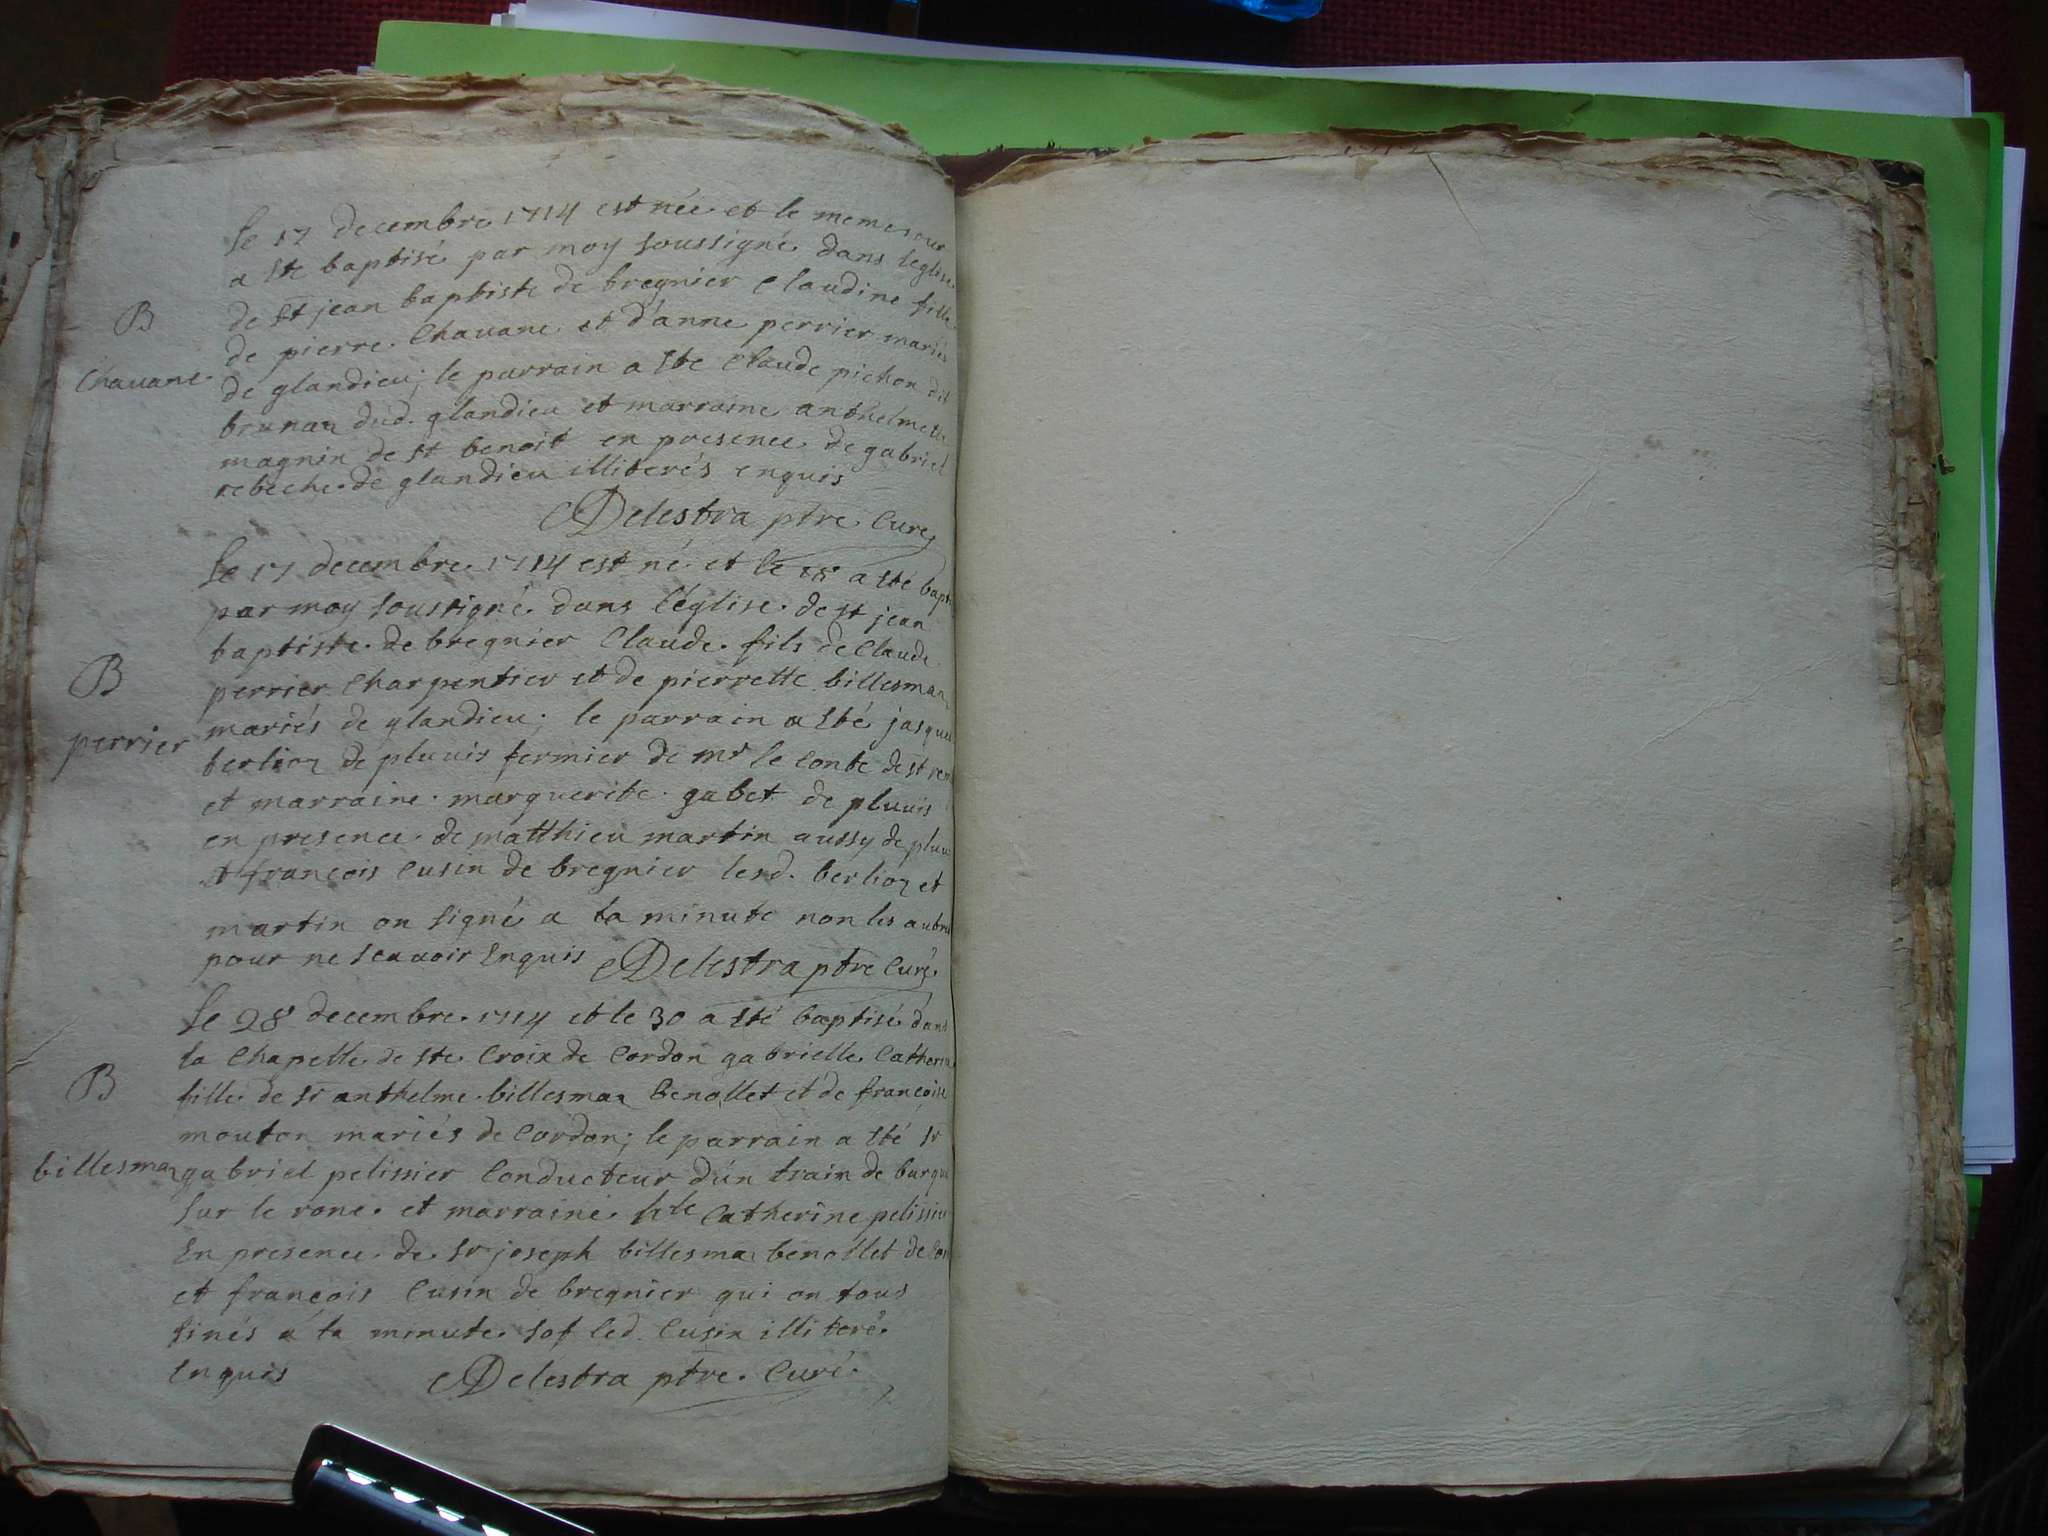 Le 17 decembre 1714 est née et le meme jour
a Sté baptisé par moy soussigné dans leglise
de St jean baptiste de bregnier Claudine fille
B
de pierre Chavane et d'anne perrier mariés
Chavane
de glandieu; le parrain a Sté Claude pichon dit
brunau dud. glandieu et marraine anthelmette
magnin de St benoit en presence de gabriel
rebeche de glandieu illiterés enquis
Delestra ptre Curé
Le 17 decembre 1714 est né et le 18 a Sté bapt
par moy soussigné dans l'église de St jean
baptiste de bregnier Claude fils de Claude
B
perrier Charpentier et de pierrette billesmaz
perrier
mariés de glandieu; le parrain a Sté jasques
berlioz de pluvis fermier de mr le Conte de St
et marraine marguerite gabet de pluvis
en presence de matthieu martin aussy de pluv
& françois Cusin de bregnier lesd. berlioz et
martin on signé a la minute non les autres
pour ne scavoir Enquis Delestra ptre Curé
Le 28 decembre 1714 et le 30 a Sté baptisé dans
la Chapelle de Ste Croix de Cordon gabrielle Catherine
B
fille de Sr anthelme billesmaz benollet et de françoise
mouton mariés de Cordon; le parrain a Sté Sr
billesmaz
gabriel pelissier Conducteur d'un train de barque
sur le rone et marraine hle Catherine pelissier
En presence de Sr joseph billesmaz benollet de Cor
et françois Cusin de bregnier qui on tous
sinés a la minute sof led. Cusin illiteré
Enquis
Delestra ptre Curé